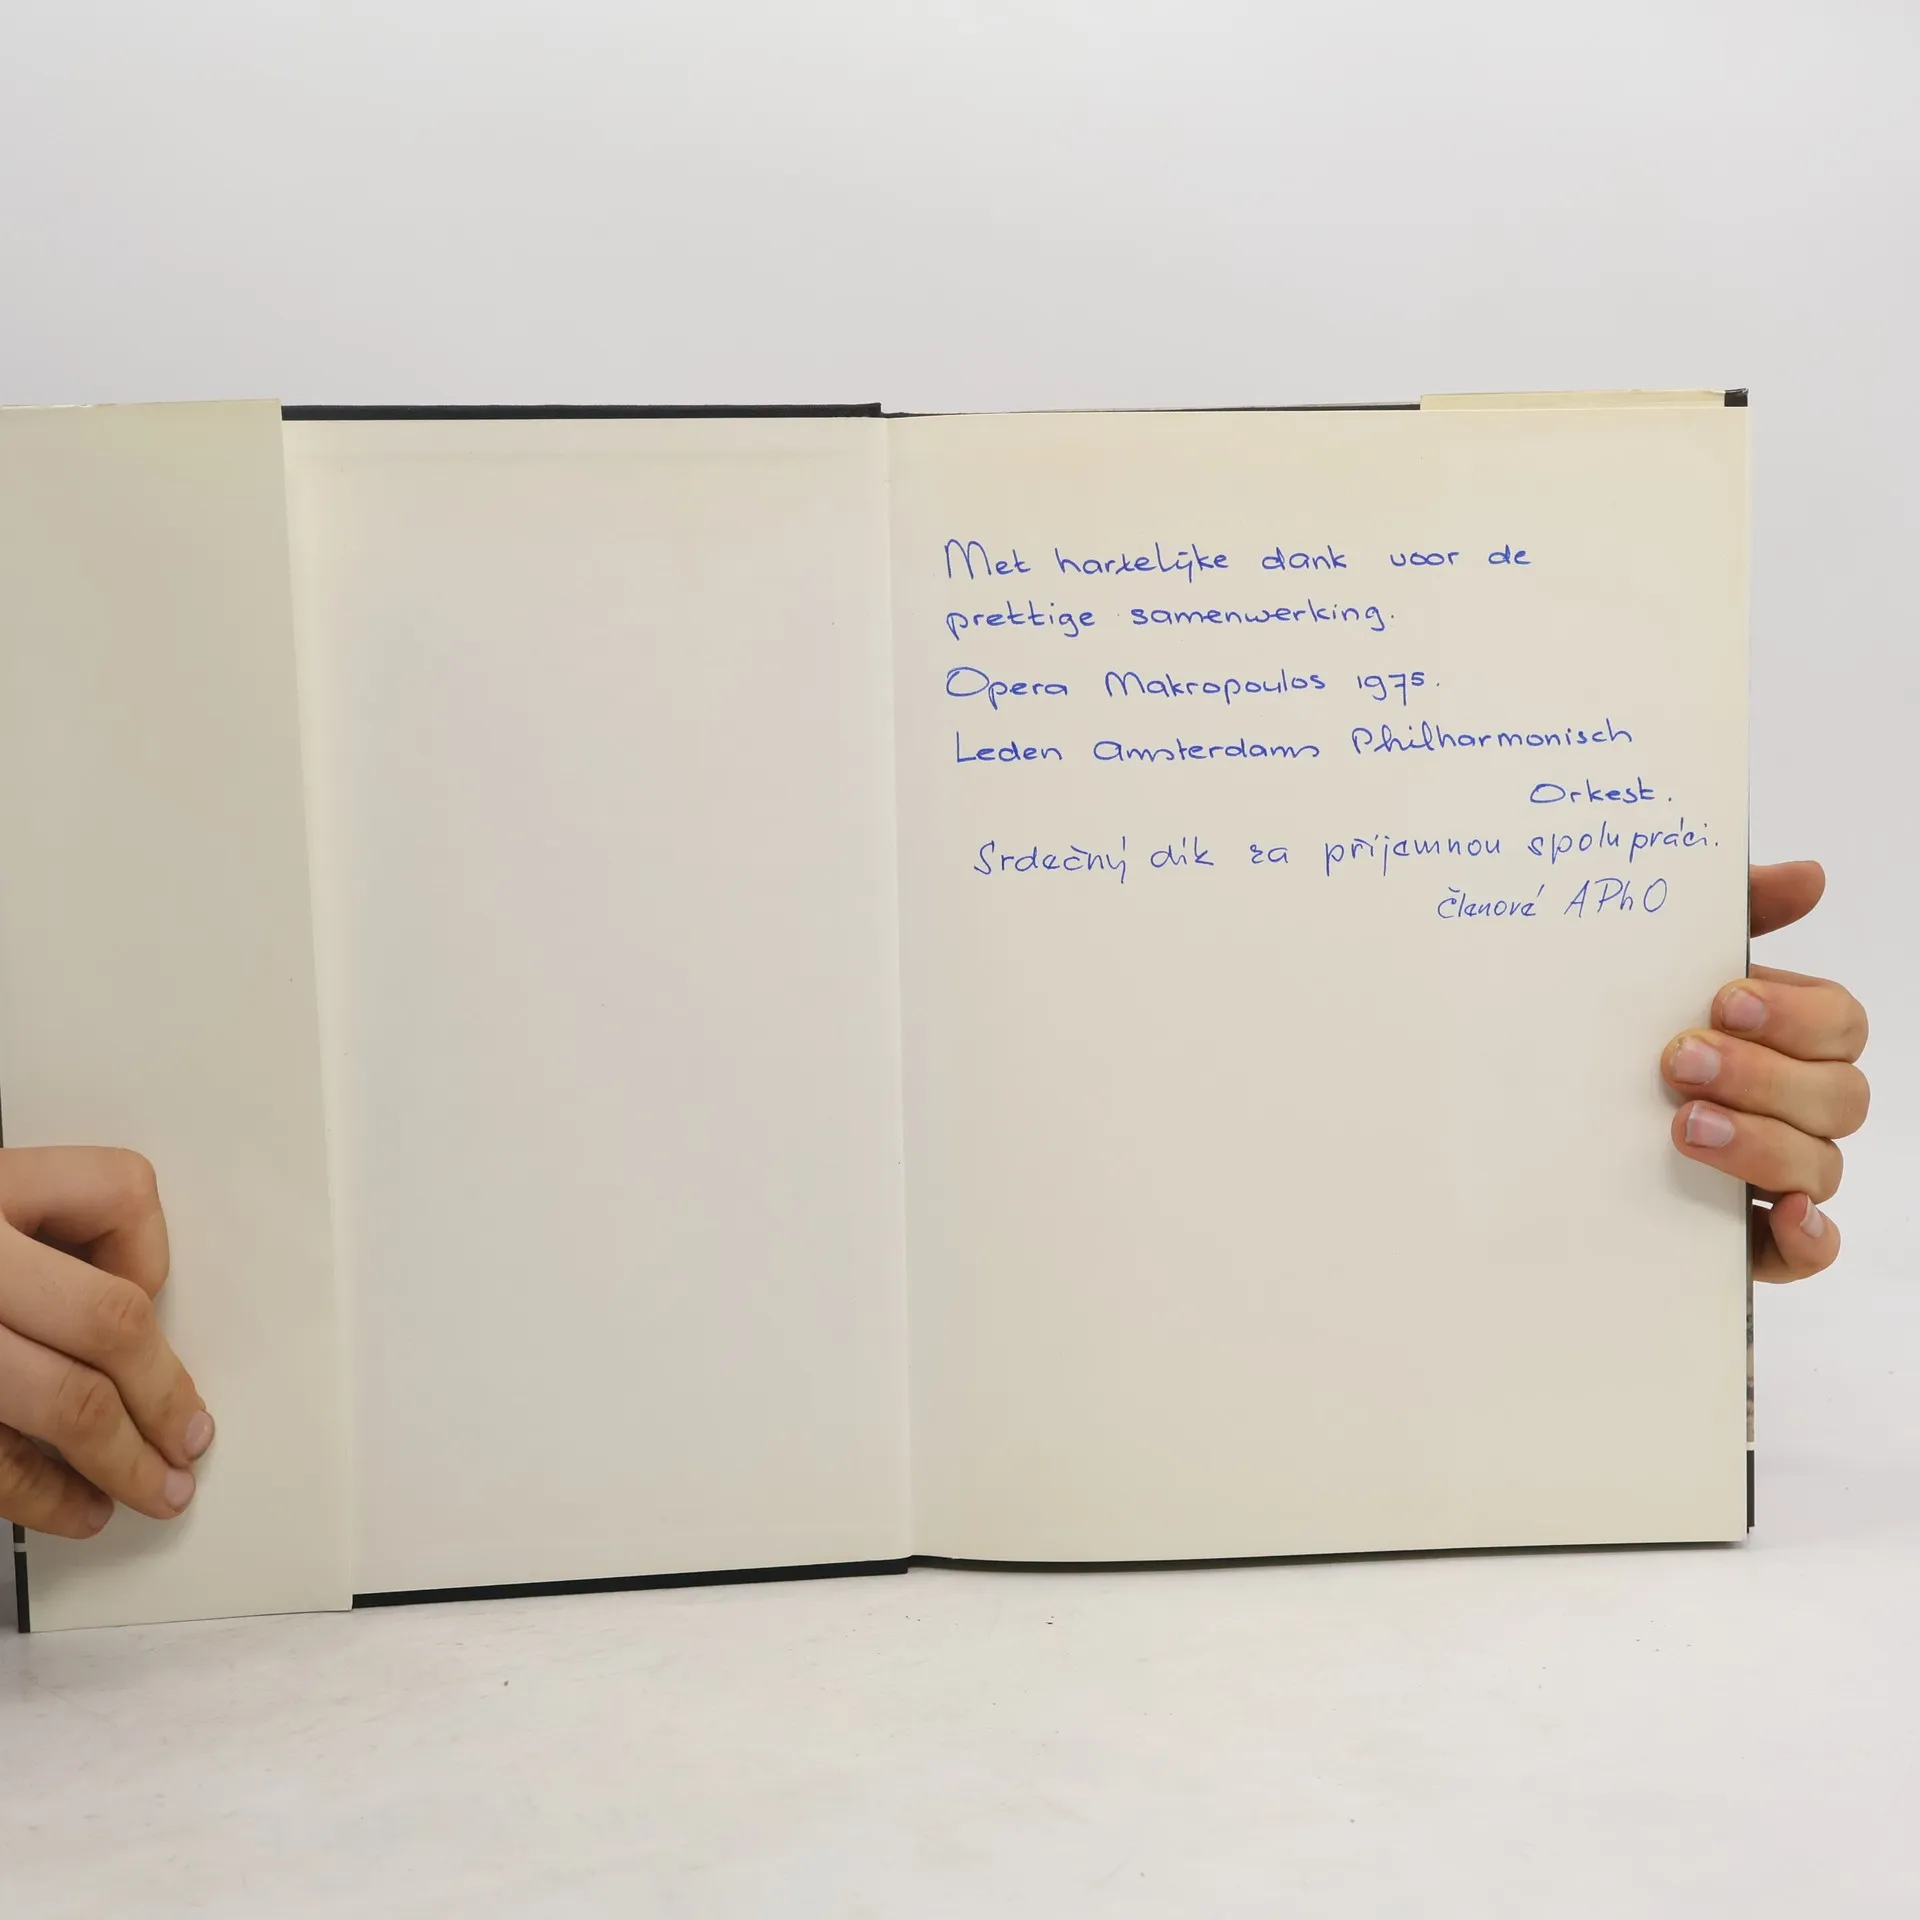 Met hartelijke dank voor de
prettige samenwerking.
Opera Makropoulos 1975.
Leden Amsterdams Philharmonisch
Orkest.
Srdečný dík za příjemnou spolupráci.
Členové APhO